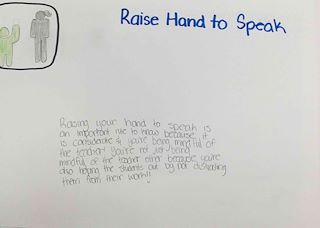 Raise Hand to Speak
Raising your hand to speak is
an important rule to know because it
is considerate & you're being mindful of
the teacher! You're not just being
mindful of the teacher either because you're
also helping the students out by not distracting
them from their work!!